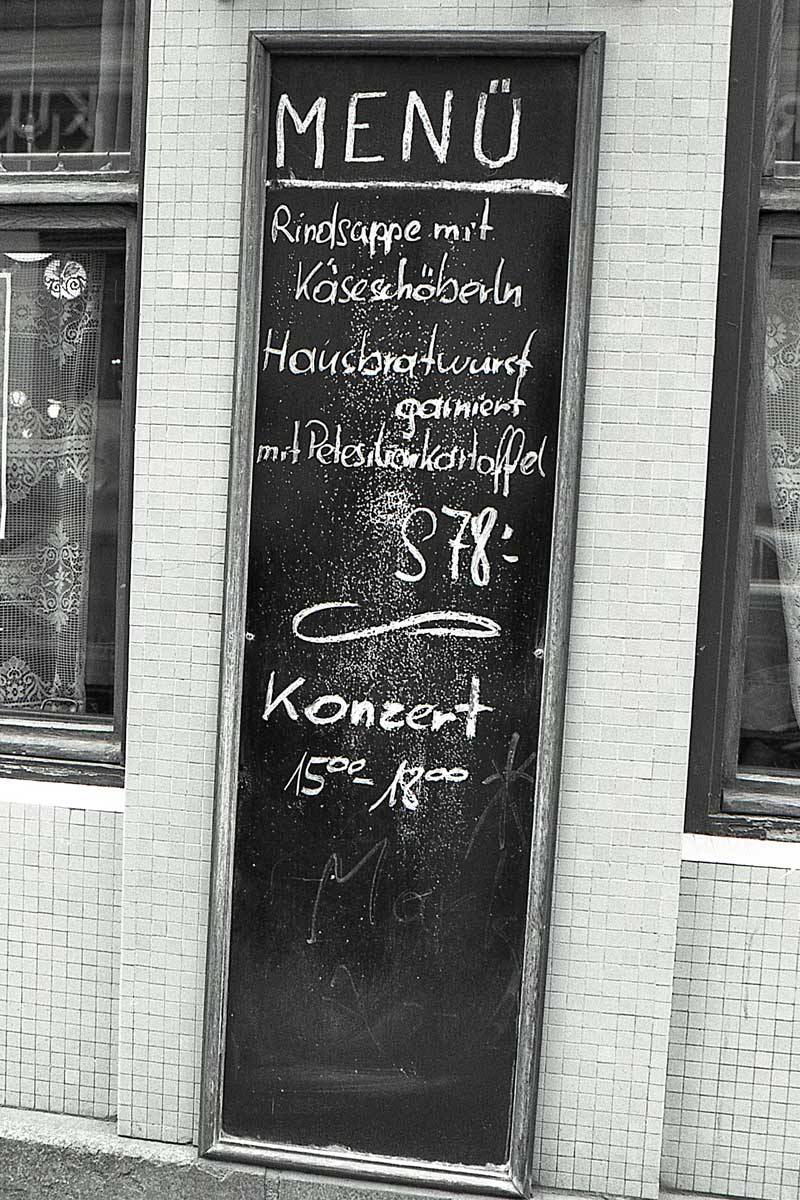 MENÜ
Rindsuppe mit
Käseschöberln
Hausbratwurst
garniert
mit Petersilienkartoffel
S 78:-
Konzert
15⁰⁰-18⁰⁰